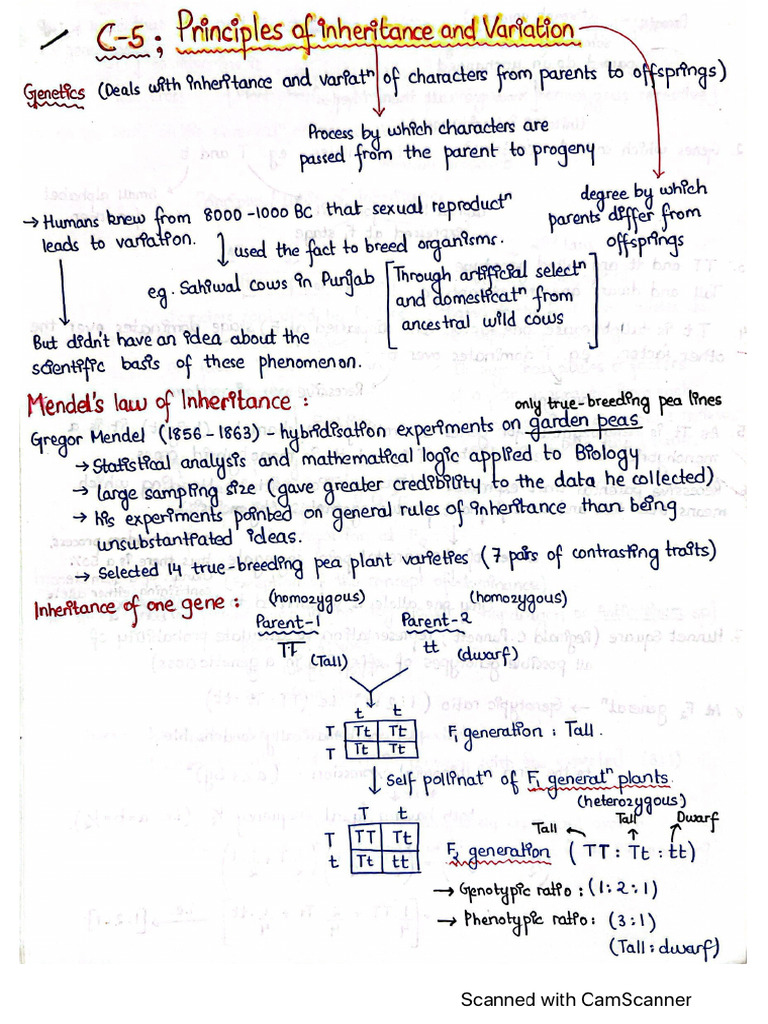 C-5; Principles of inheritance and Variation
Genetics (Deals with inheritance and variatⁿ of characters from parents to offsprings)
Process by which characters are
passed from the parent to progeny
degree by which
parents differ from
offsprings
→ Humans knew from 8000-1000 BC that sexual reproductⁿ
leads to variation.
used the fact to breed organisms.
eg. Sahiwal cows in Punjab
[Through artificial selectⁿ
and domesticatⁿ from
ancestral wild cows]
But didn't have an idea about the
scientific basis of these phenomenon.
Mendel's law of Inheritance :
only true-breeding pea lines
Gregor Mendel (1856-1863) - hybridisation experiments on garden peas
→ Statistical analysis and mathematical logic applied to Biology
→ large sampling size (gave greater credibility to the data he collected)
→ his experiments pointed on general rules of inheritance than being
unsubstantiated ideas.
→ Selected 14 true-breeding pea plant varieties (7 pairs of contrasting traits)
Inheritance of one gene :
(homozygous) (homozygous)
Parent-1 Parent-2
TT (Tall) tt (dwarf)
t t
T Tt Tt
T Tt Tt
F₁ generation : Tall.
↓ Self pollinatⁿ of F₁ generatⁿ plants.
(heterozygous)
T t
T TT Tt
t Tt tt
Tall Tall Dwarf
F₂ generation (TT : Tt : tt)
→ Genotypic ratio : (1:2:1)
→ Phenotypic ratio : (3:1)
(Tall : dwarf)
Scanned with CamScanner